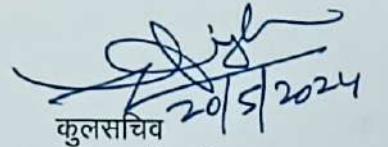 20/5/2024
कुलसचिव